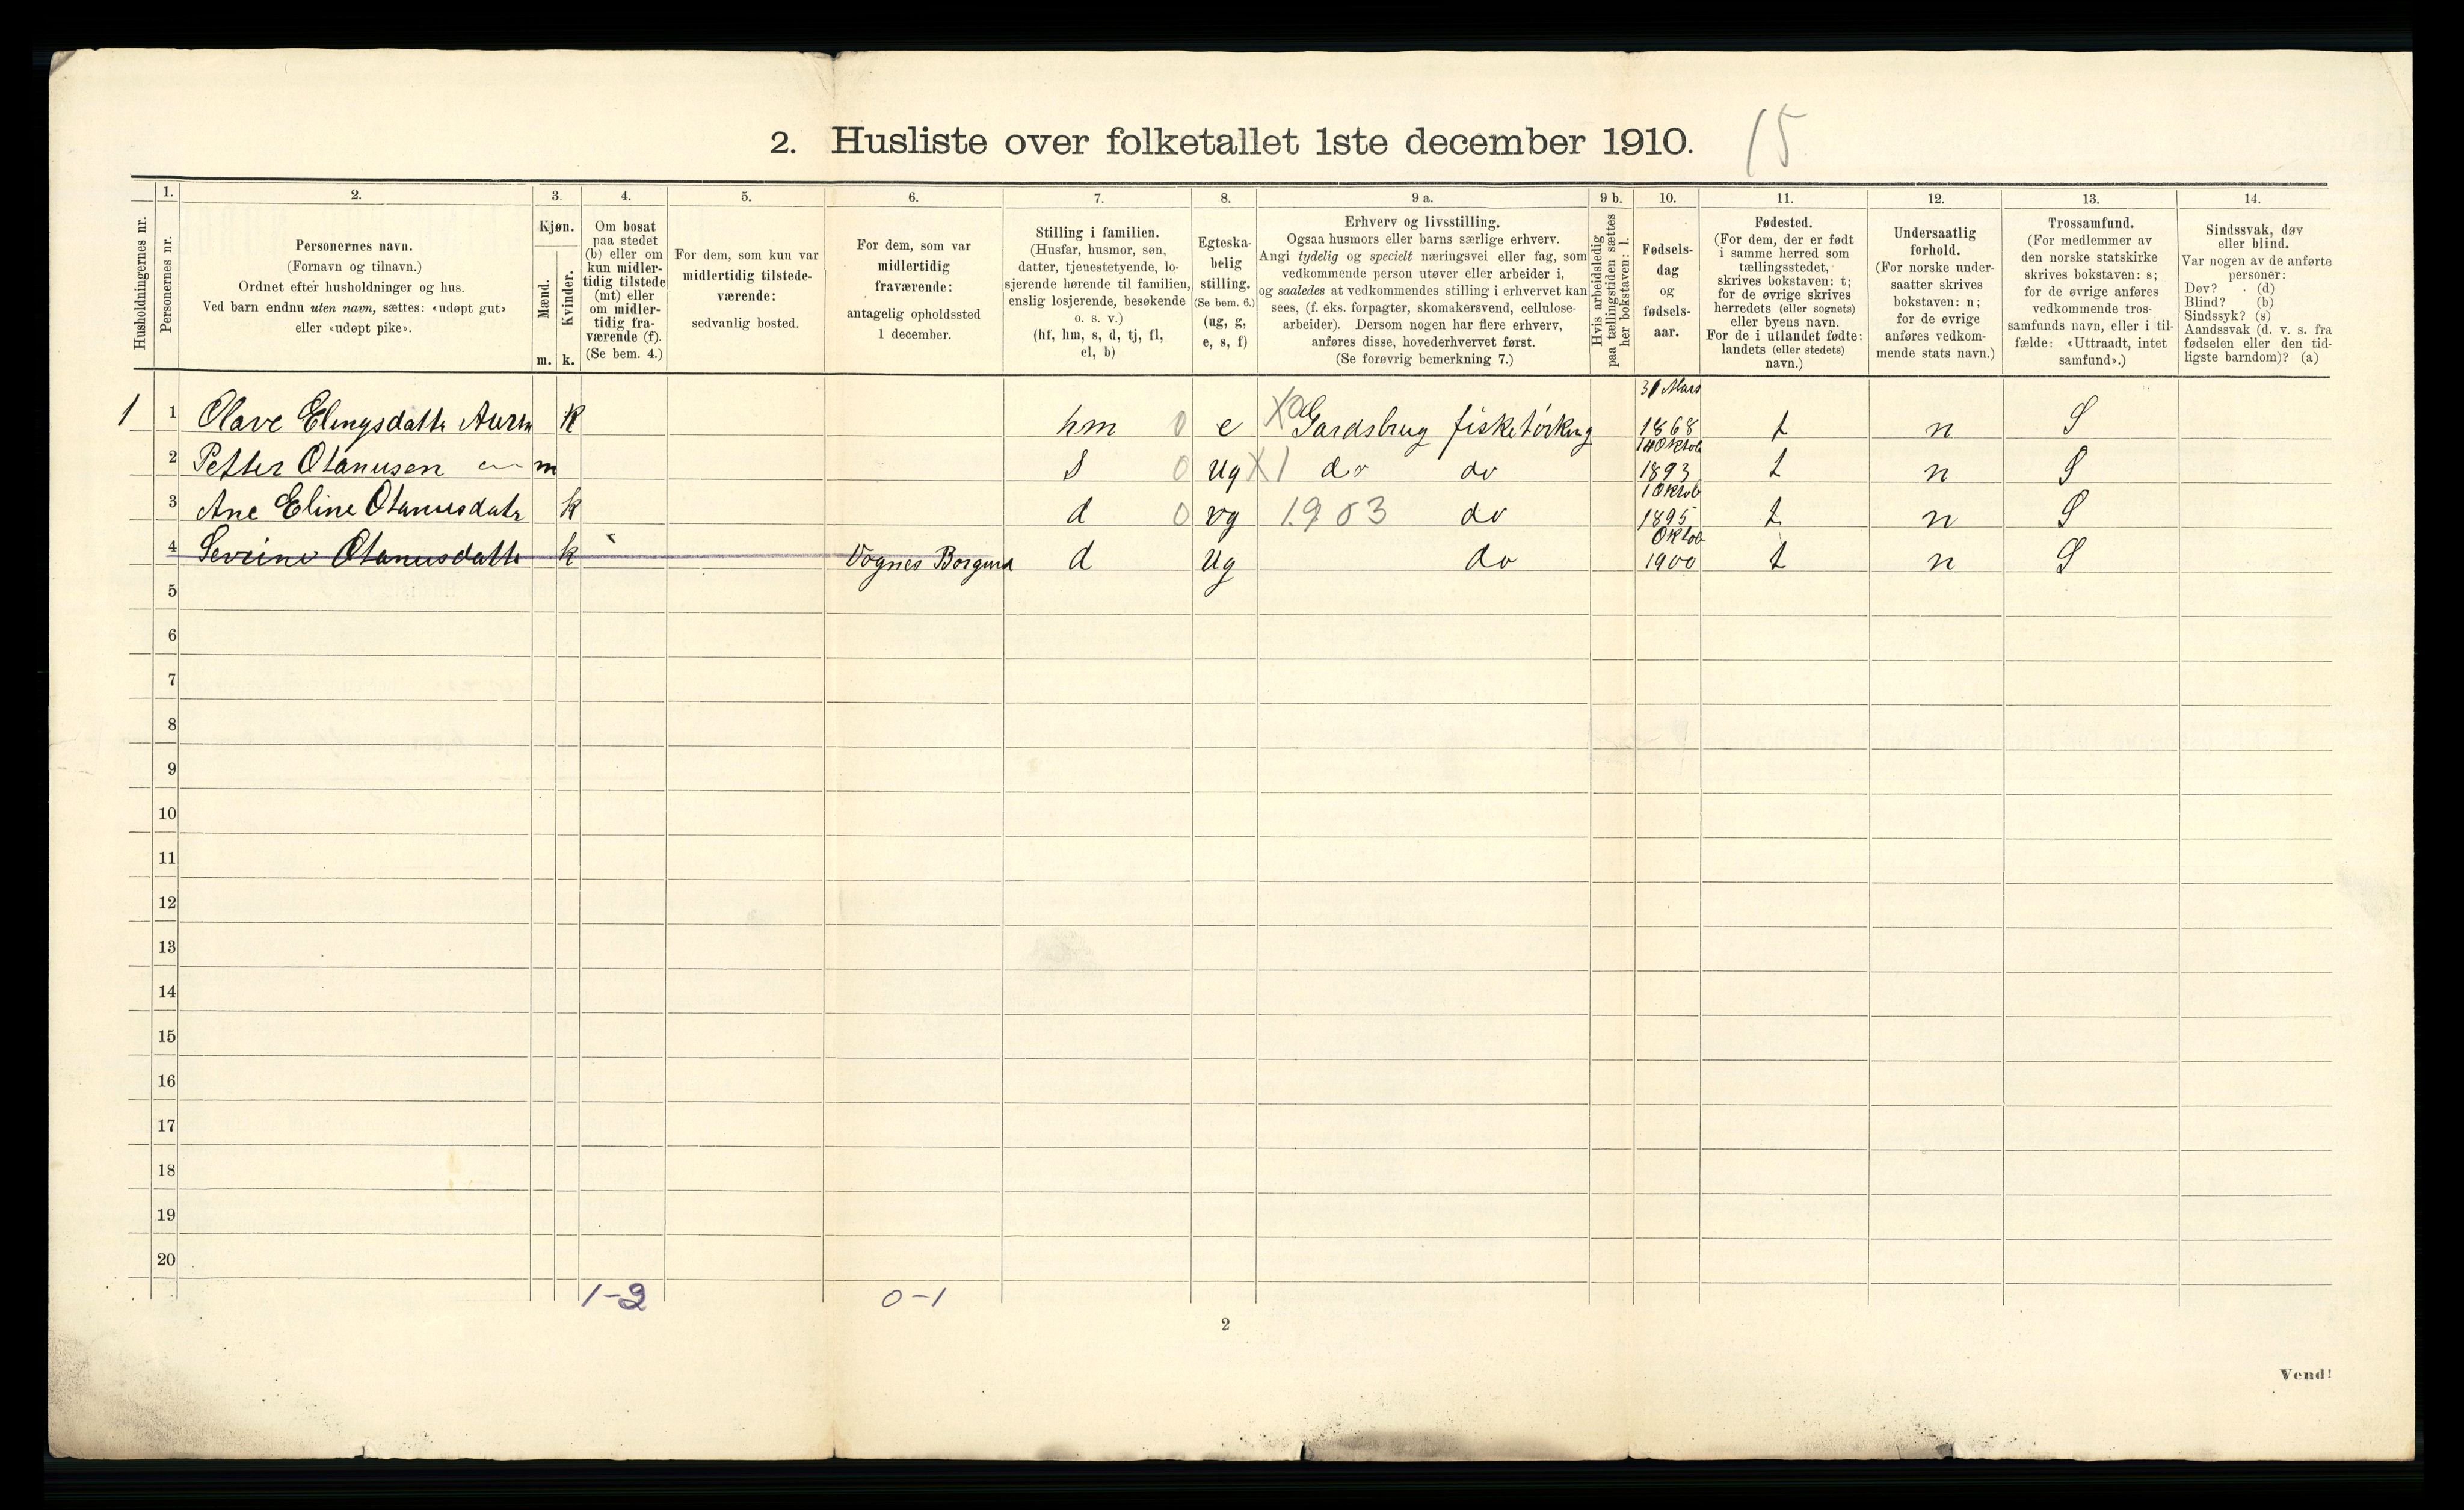 2. Husliste over folketallet 1ste december 1910.
15
1.
2.
3.
4.
5.
6.
7.
8.
9 a.
9 b.
10.
11.
12.
13.
14.
Husholdningernes nr.
Personernes nr.
Personernes navn.
(Fornavn og tilnavn.)
Ordnet efter husholdninger og hus.
Ved barn endnu uten navn, sættes: «udøpt gut»
eller «udøpt pike».
Kjøn.
Mænd.
Kvinder.
m.
k.
Om bosat
paa stedet
(b) eller om
kun midler-
tidig tilstede
(mt) eller
om midler-
tidig fra-
værende (f).
(Se bem. 4.)
For dem, som kun var
midlertidig tilstede-
værende:
sedvanlig bosted.
For dem, som var
midlertidig
fraværende:
antagelig opholdssted
1 december.
Stilling i familien.
(Husfar, husmor, søn,
datter, tjenestetyende, lo-
sjerende hørende til familien,
enslig losjerende, besøkende
o. s. v.)
(hf, hm, s, d, tj, fl,
el, b)
Egteska-
belig
stilling.
(Se bem. 6.)
(ug, g,
e, s, f)
Erhverv og livsstilling.
Ogsaa husmors eller barns særlige erhverv.
Angi tydelig og specielt næringsvei eller fag, som
vedkommende person utøver eller arbeider i,
og saaledes at vedkommendes stilling i erhvervet kan
sees, (f. eks. forpagter, skomakersvend, cellulose-
arbeider). Dersom nogen har flere erhverv,
anføres disse, hovederhvervet først.
(Se forøvrig bemerkning 7.)
Hvis arbeidsledig
paa tællingstiden sættes
her bokstaven: l.
Fødsels-
dag
og
fødsels-
aar.
Fødested.
(For dem, der er født
i samme herred som
tællingsstedet,
skrives bokstaven: t;
for de øvrige skrives
herredets (eller sognets)
eller byens navn.
For de i utlandet fødte:
landets (eller stedets)
navn.)
Undersaatlig
forhold.
(For norske under-
saatter skrives
bokstaven: n;
for de øvrige
anføres vedkom-
mende stats navn.)
Trossamfund.
(For medlemmer av
den norske statskirke
skrives bokstaven: s;
for de øvrige anføres
vedkommende tros-
samfunds navn, eller i til-
fælde: «Uttraadt, intet
samfund».)
Sindssvak, døv
eller blind.
Var nogen av de anførte
personer:
Døv? (d)
Blind? (b)
Sindssyk? (s)
Aandssvak (d. v. s. fra
fødselen eller den tid-
ligste barndom)? (a)
1 1 Olave Elingsdatte k hm 0 e Gardsbrug fisketørking 31 Mars 1868 t n S
2 Petter Otanusen m S 0 ug X1 do do Oktob 1893 t n S
3 Ane Eline Otanusdatr k d 0 ug 1903 do 1 Oktob 1895 t n S
4 Severine Otanusdatte k Vognes Borgund d Ug do Oktob 1900 t n S
5
6
7
8
9
10
11
12
13
14
15
16
17
18
19
20
1-2
0-1
2
Vend!